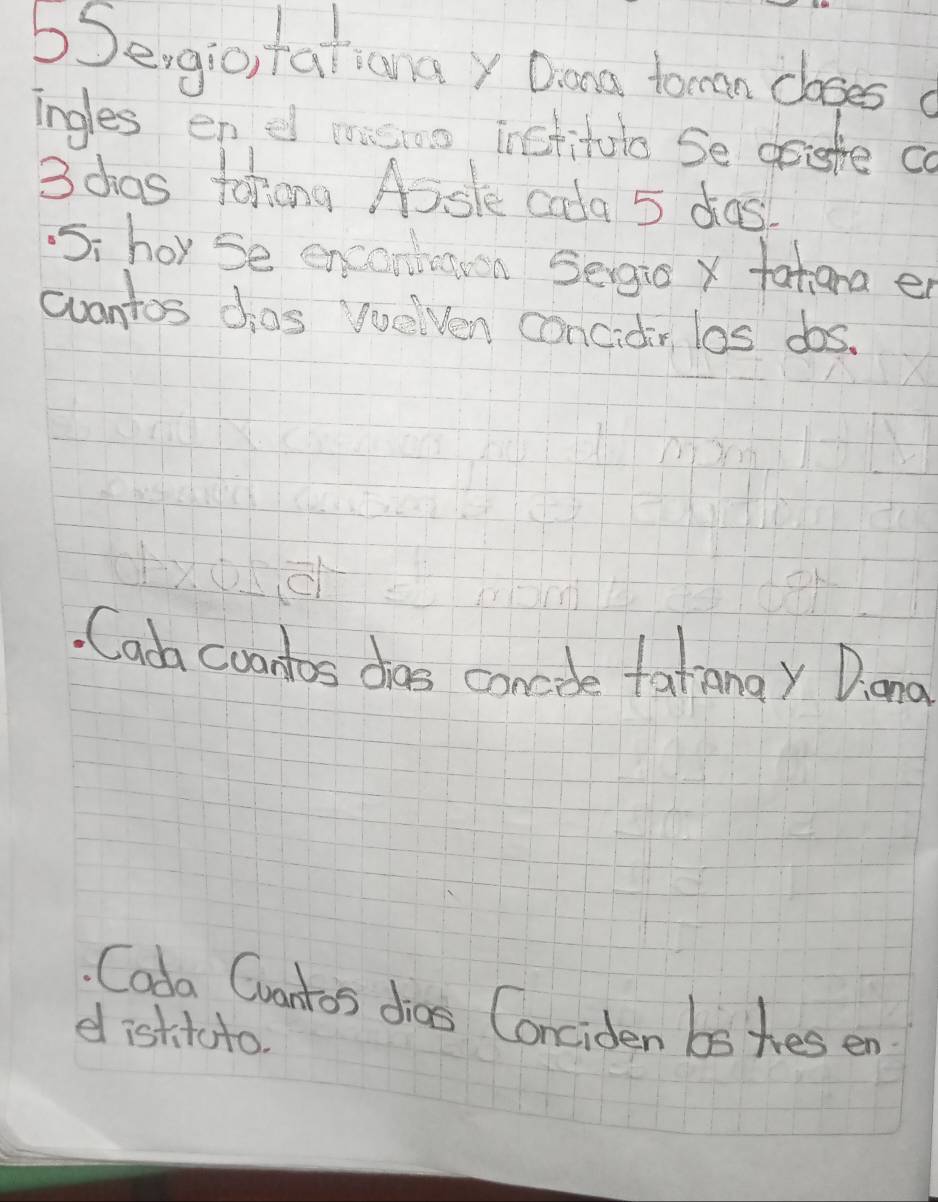 5 Sergio, tatiana y Diana toman clases d
ingles en el mismo instituto Se asiste ca
3 dias tatiana Asste cada 5 dias.
. Si hoy se encontraron Sergio y tatiana en
cuantos dias vuelven concidir los dos.
. Cada cuantos dias concide tatiana y Diana
. Cada Cuantos dias Conciden los tres en
el istituto.